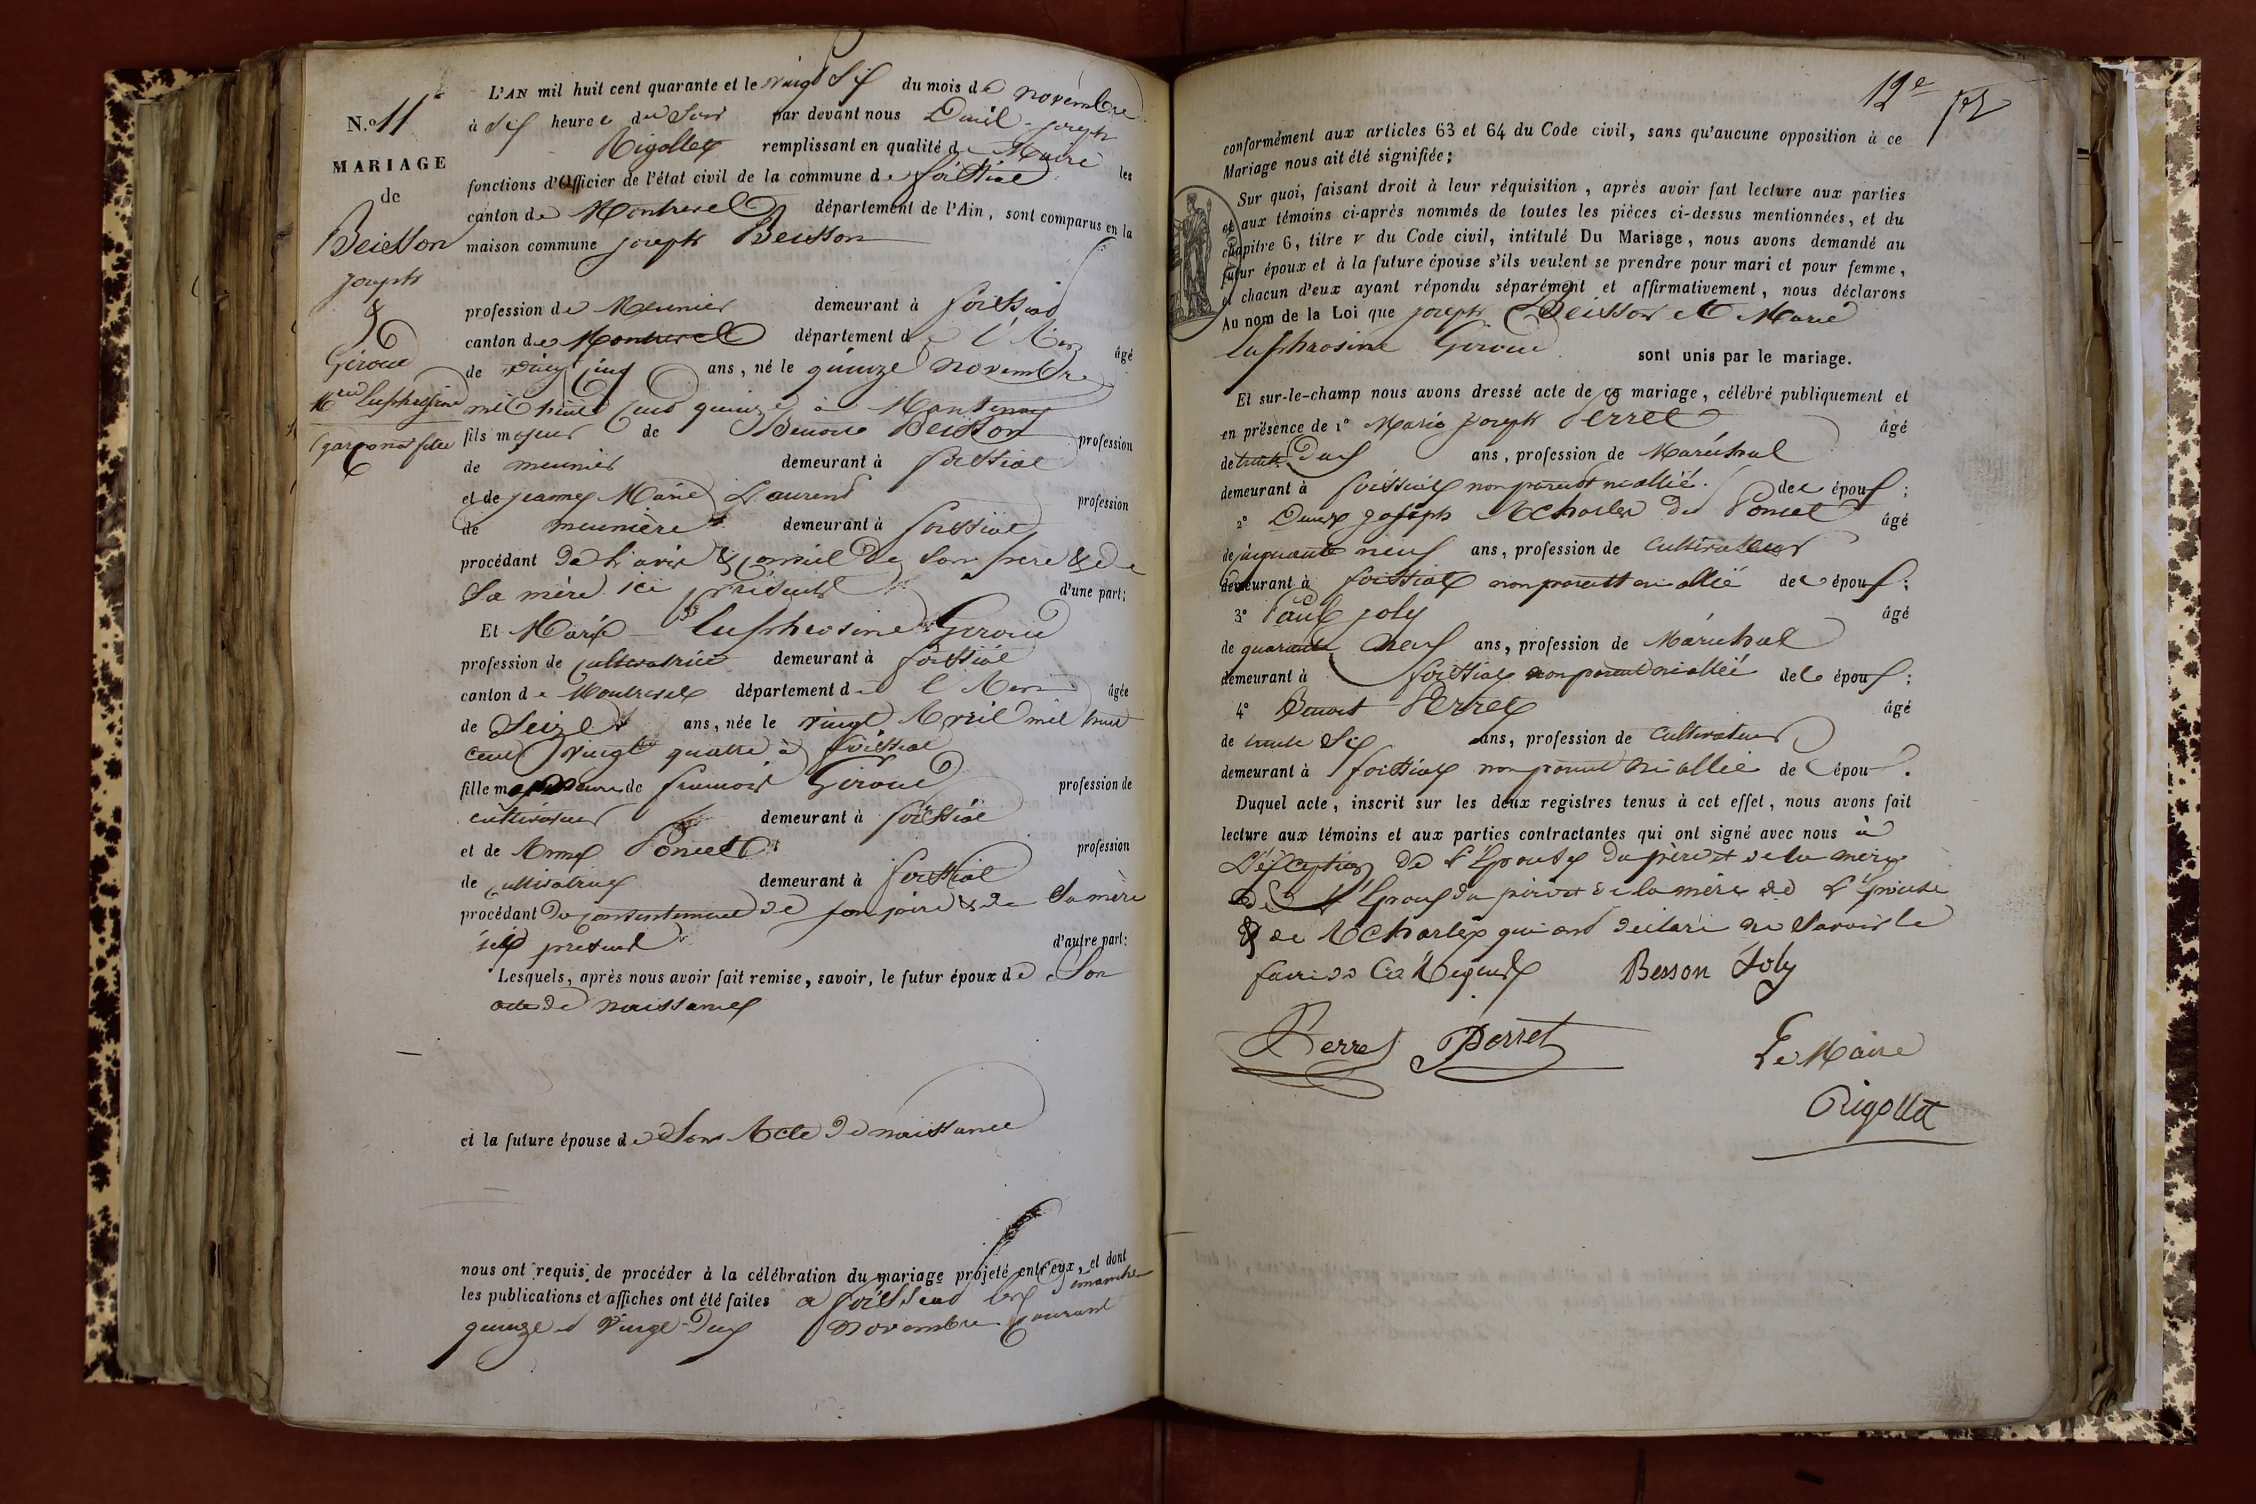 N.o 11
MARIAGE
de
Beisson
joseph
&
Giroud
garçon et fille
L'AN mil huit cent quarante et le vingt Six du mois de novembre
à Six heures du Soir par devant nous joseph
Rigollet remplissant en qualité de Maire les
fonctions d'Officier de l'état civil de la commune de foissiat
canton de Montrevel département de l'Ain, sont comparus en la
maison commune joseph Beisson
profession de Meunier demeurant à foissiat
canton de Montrevel département de l'Ain âgé
de vingt cinq ans, né le quinze novembre
mil huit cent quinze à Mantenay
fils majeur de Benoit Beisson profession
de meunier demeurant à foissiat
et de jeanne Marie Laurent profession
de meunière demeurant à foissiat
procédant de l'avis & conseil de son père & de
sa mère ici présents d'une part;
Et Marie Euphrosine Giroud
profession de cultivatrice demeurant à foissiat
canton de Montrevel département de l'Ain âgée
de Seize ans, née le vingt Avril mil huit
cent vingt quatre à foissiat
fille mineure de françois Giroud profession de
cultivateur demeurant à foissiat
et de Anne Poncet profession
de cultivatrice demeurant à foissiat
procédant du consentement de son père & de sa mère
ici présents d'autre part:
Lesquels, après nous avoir fait remise, savoir, le futur époux de Son
acte de naissance
et la future épouse de Son Acte de naissance
nous ont requis de procéder à la célébration du mariage projeté entr'eux, et dont
les publications et affiches ont été faites à foissiat les dimanches
quinze et vingt-deux novembre courant
12e
conformément aux articles 63 et 64 du Code civil, sans qu'aucune opposition à ce
Mariage nous ait été signifiée;
Sur quoi, faisant droit à leur réquisition, après avoir fait lecture aux parties
et aux témoins ci-après nommés de toutes les pièces ci-dessus mentionnées, et du
chapitre 6, titre V du Code civil, intitulé Du Mariage, nous avons demandé au
futur époux et à la future épouse s'ils veulent se prendre pour mari et pour femme,
et chacun d'eux ayant répondu séparément et affirmativement, nous déclarons
Au nom de la Loi que joseph Beisson et Marie
Euphrosine Giroud sont unis par le mariage.
Et sur-le-champ nous avons dressé acte de ce mariage, célébré publiquement et
en présence de 1o Marie joseph Perret âgé
de trente Deux ans, profession de Maréchal
demeurant à foissiat non parent ni allié des époux;
2o joseph de Poncet âgé
de cinquante neuf ans, profession de Cultivateur
demeurant à foissiat non parent ni allié des époux;
3o Paul joly âgé
de quarante neuf ans, profession de Maréchal
demeurant à foissiat non parent ni allié des époux;
4o Benoit Perret âgé
de trente Six ans, profession de Cultivateur
demeurant à foissiat non parent ni allié des époux.
Duquel acte, inscrit sur les deux registres tenus à cet effet, nous avons fait
lecture aux témoins et aux parties contractantes qui ont signé avec nous à
L'éxception de l'Epouse du père et de la mère
de l'Epoux du père et de la mère de l'épouse
& de qui ont déclaré ne Savoir le
faire de ce Requis Besson Joly
Perret Perret
Le Maire
Rigollet